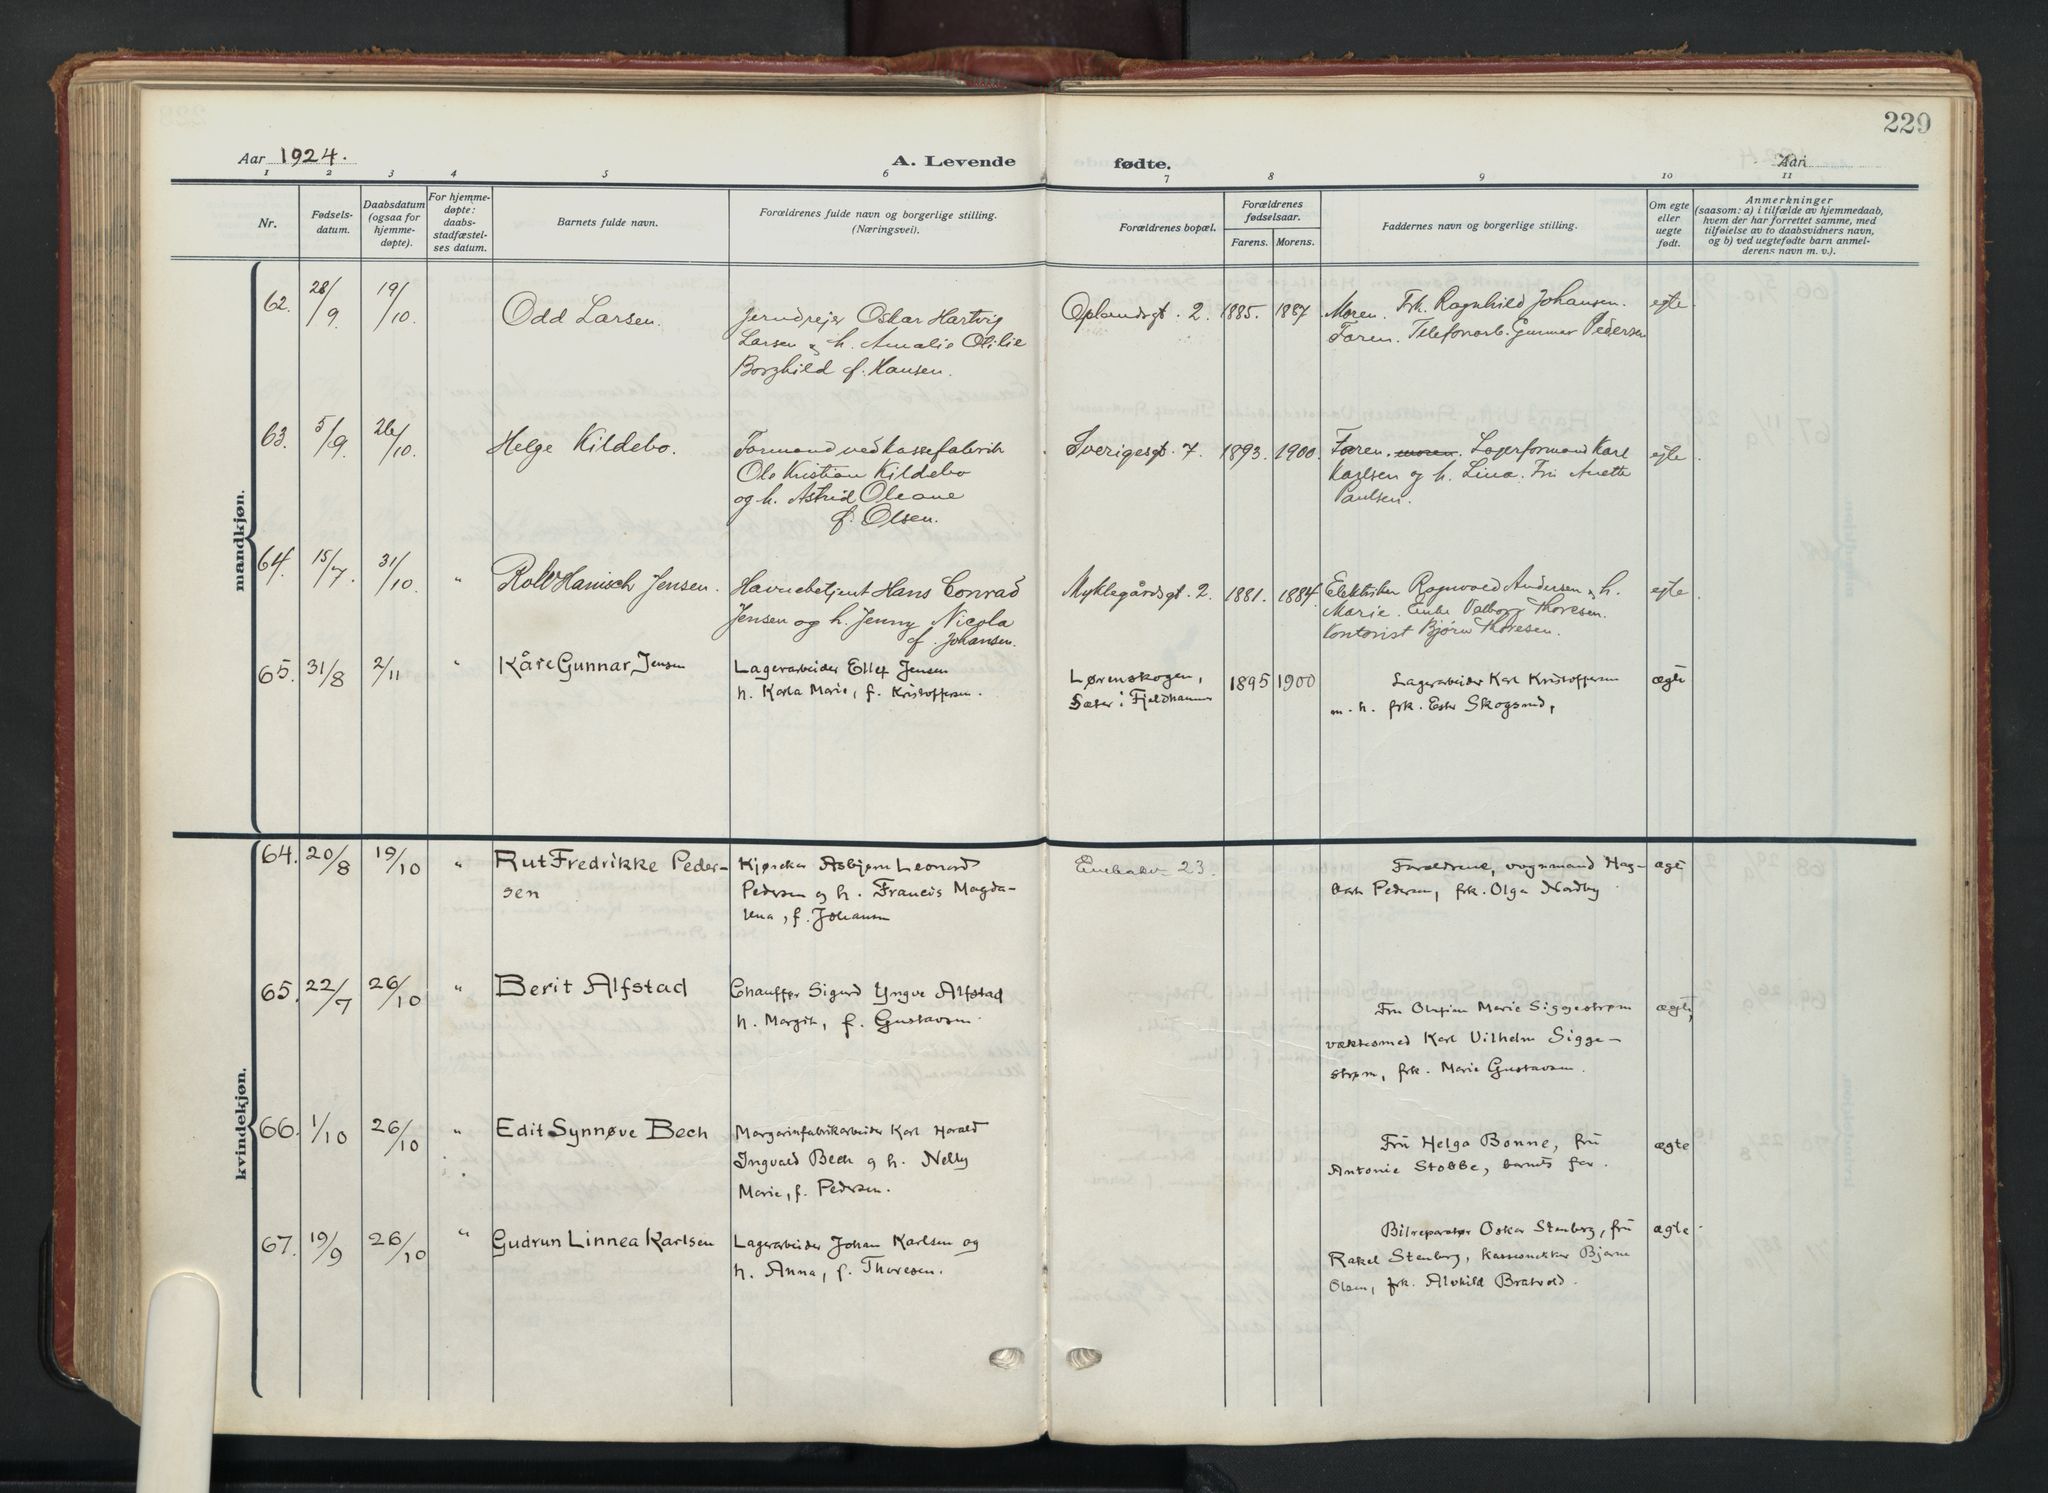 229
Aar 1924.
A. Levende
fødte.
Aar
1
2
3
4
5
6
7
8
9
10
11
Nr.
Fødsels-
datum.
Daabsdatum
(ogsaa for
hjemme-
døpte).
For hjemme-
døpte:
daabs-
stadfæstel-
ses datum.
Barnets fulde navn.
Forældrenes fulde navn og borgerlige stilling.
(Næringsvei).
Forældrenes bopæl.
Forældrenes
fødselsaar.
Farens. Morens.
Faddernes navn og borgerlige stilling.
Om egte
eller
uegte
født.
Anmerkninger
(saasom: a) i tilfælde av hjemmedaab,
hvem der har forrettet samme, med
tilføielse av to daabsvidners navn,
og b) ved uegtefødte barn anmel-
derens navn m. v.).
mandkjøn.
62. 28/9 19/10
Odd Larsen.
Jerndreier Oskar Hartvig
Larsen & h. Amalie Otilie
Borghild f. Hansen.
Oplandsgt. 2. 1885. 1887.
Moren. Frk. Ragnhild Johansen.
Faren. Telefonarb. Gunnar Pedersen
egte
63. 5/9 26/10
Helge Kildebo.
Formand ved kassefabrik
Ole Kristian Kildebo
og h. Astrid Oleane
f. Olsen.
Sverigesgt. 7. 1893. 1900.
Faren. moren. Lagerformand Karl
Karlsen og h. Lina. Fru Anette
Paulsen.
egte
64. 15/7. 31/10. "
Rolf Hanisch Jensen.
Havnebetjent Hans Conrad
Jensen og h. Jenny Nicola
f. Johansen.
Myklegårdsgt. 2. 1881. 1884.
Elektriker Ragnvald Andersen & h.
Marie. Enke Valborg Thoresen.
Kontorist Bjørn Thoresen.
egte
65. 31/8 2/11 "
Kåre Gunnar Jensen
Lagerarbeider Ellef Jensen
h. Karla Marie, f. Kristoffersen.
Lørenskogen,
Sæter i Fjeldhammer
1895 1900
Lagerarbeider Karl Kristoffersen
m. h. frk. Ester Skogsrud,
ægte
kvindekjøn.
64. 20/8 19/10 "
Rut Fredrikke Peder-
sen
Kjøreker Asbjørn Leonard
Pedersen og h. Francis Magda-
lena, f. Johansen
Enebakv 23.
Forældrene, vognmand Hag-
bart Pedersen, frk. Olga Nordby
ægte
65. 22/7 26/10 "
Berit Alfstad
Chauffør Sigurd Yngve Alfstad
h. Margit, f. Gustavsen.
Fru Marie Siggestrøm
Karl Vilhelm Sigge-
strøm, frk. Marie Gustavsen.
ægte,
66. 1/10 26/10 "
Edit Synnøve Bech
Margarinfabrikarbeider Karl Harald
Ingvald Bech og h. Nelly
Marie, f. Pedersen.
Fru Helga Bonne, fru
Antonie Stobbe, barnets far.
ægte
67. 19/9 26/10 "
Gudrun Linnea Karlsen
Lagerarbeider Johan Karlsen og
h. Anna, f. Thoresen.
Bilreparatør Oskar Stenberg, fru
Rakel Stenberg, kassesnekker Bjarne
Olsen, frk. Alvhild Bratvold.
ægte